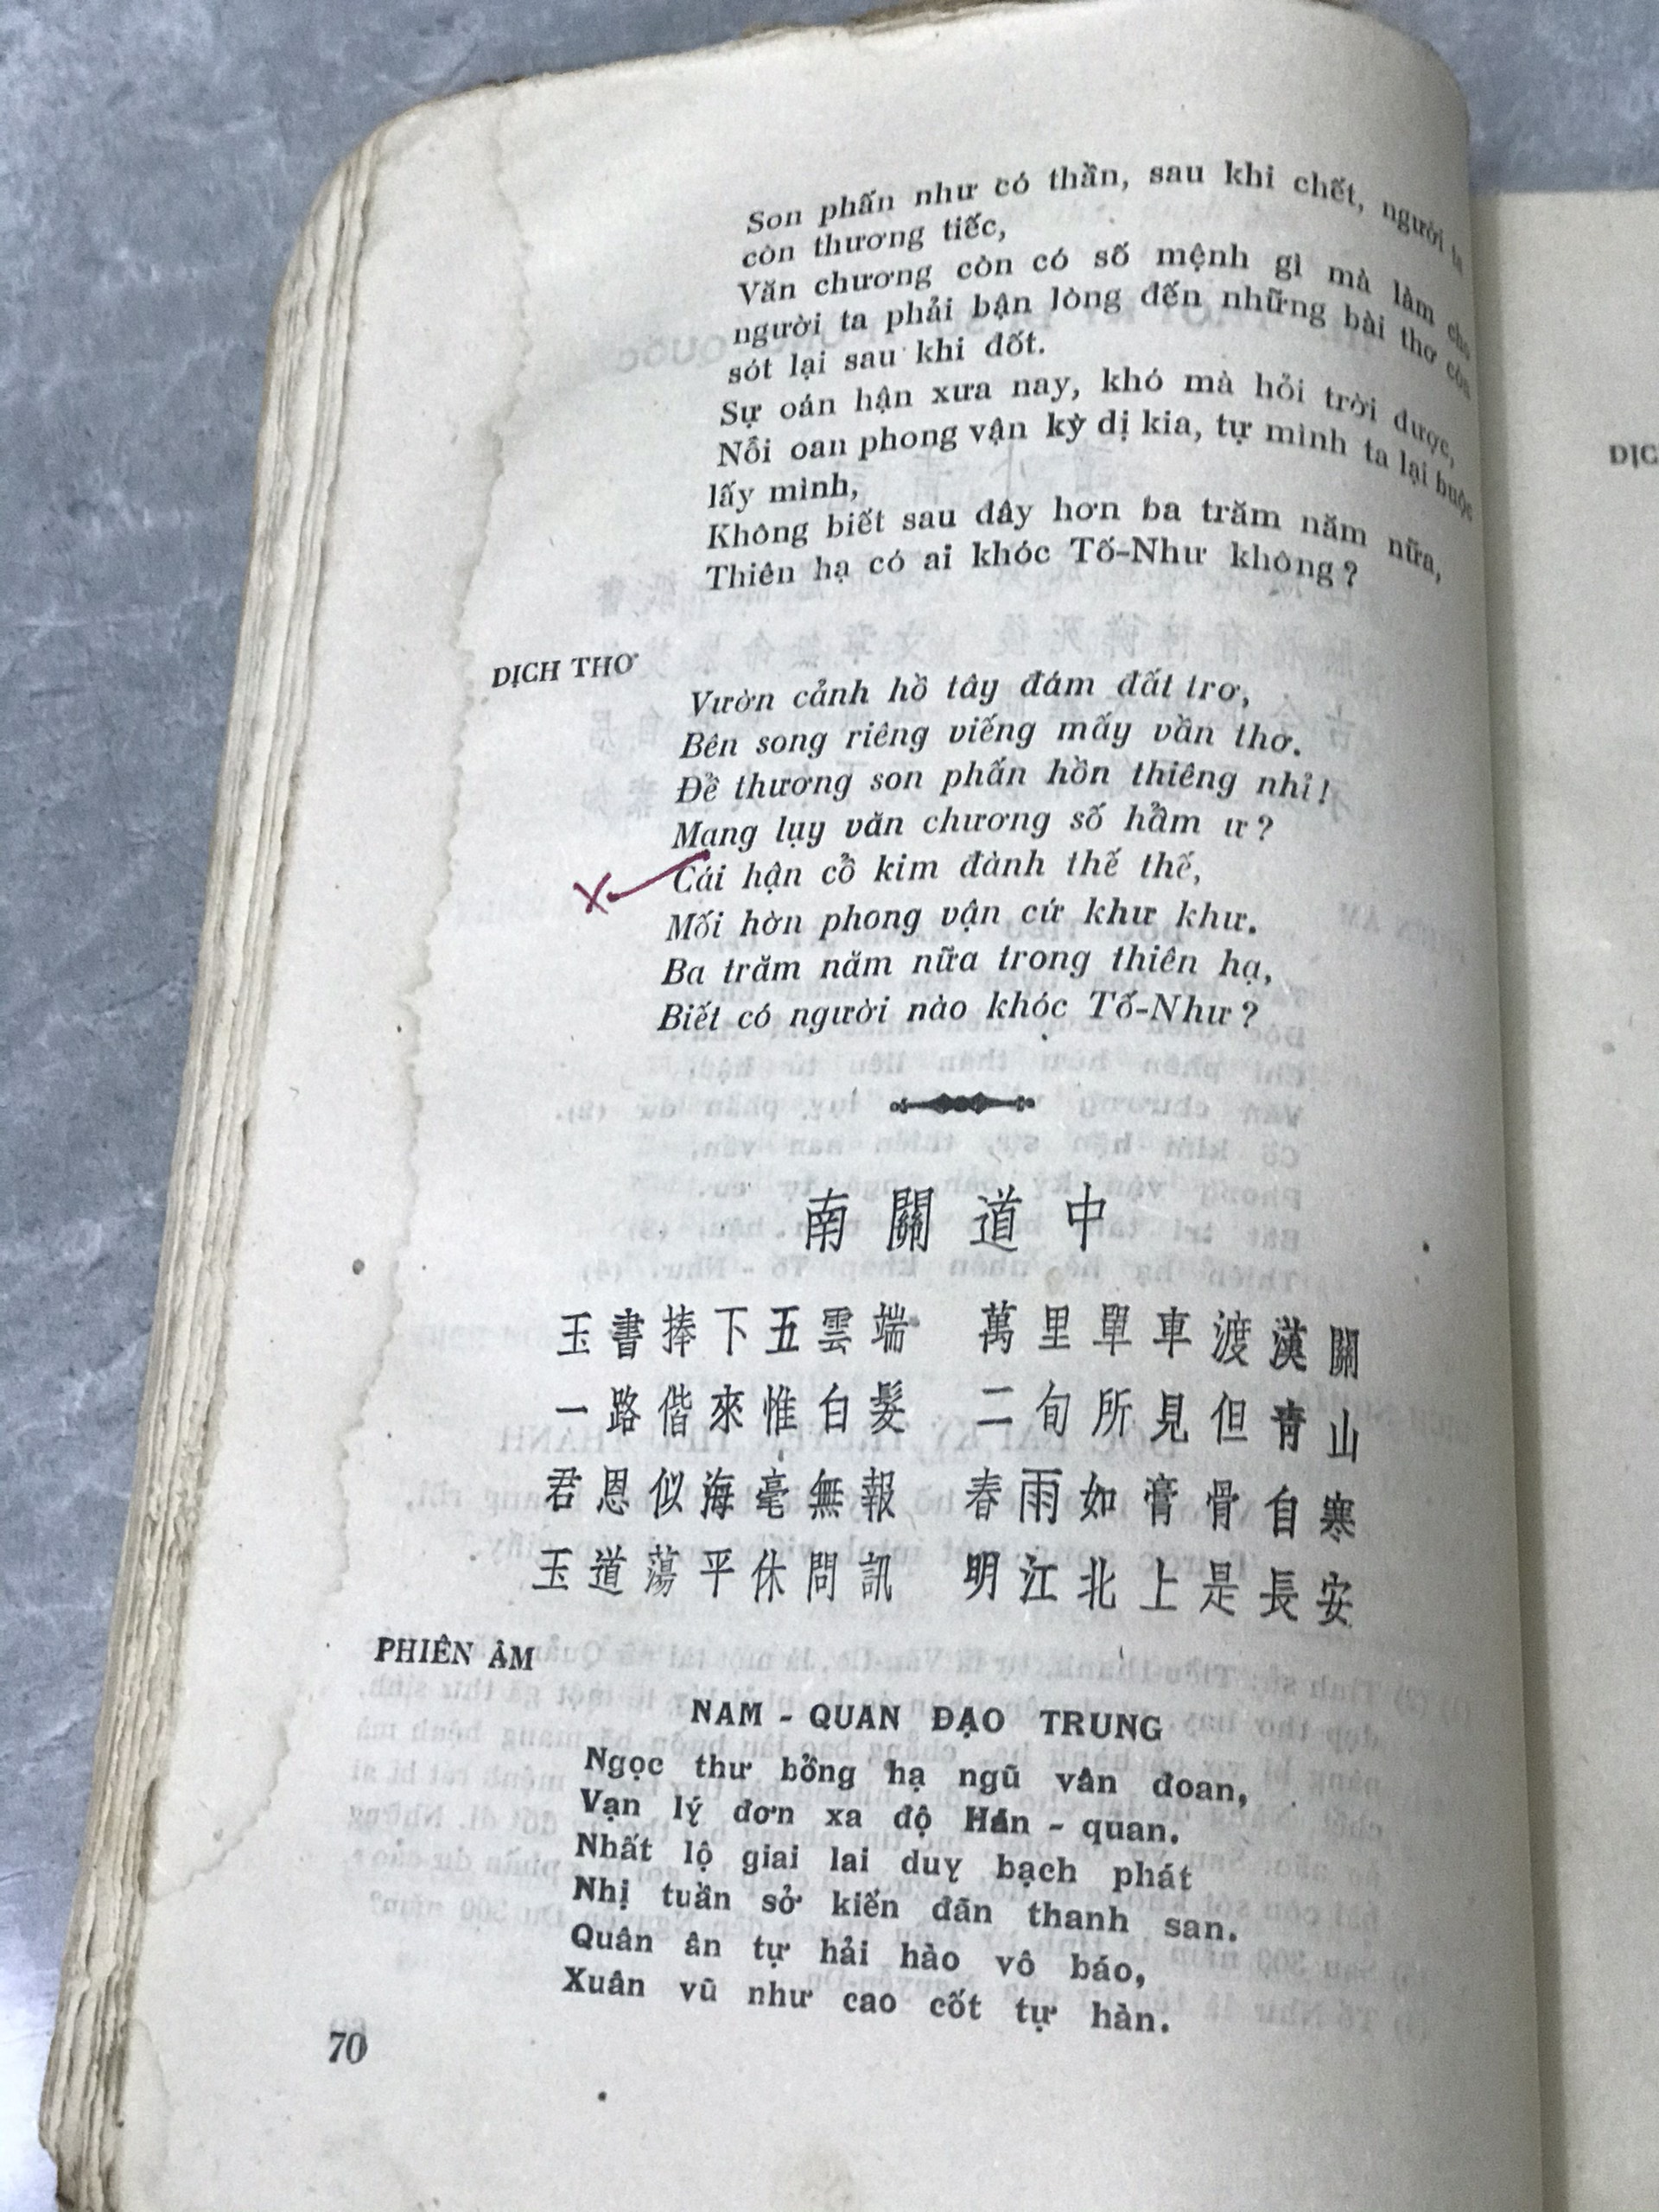 Son phấn như có thần, sau khi chết, người ta
còn thương tiếc,
Văn chương còn có số mệnh gì mà làm cho
người ta phải bận lòng đến những bài thơ còn
sót lại sau khi đốt.
Sự oán hận xưa nay, khó mà hỏi trời được,
Nỗi oan phong vận kỳ dị kia, tự mình ta lại buộc
lấy mình,
Không biết sau đây hơn ba trăm năm nữa,
Thiên hạ có ai khóc Tố-Như không?
DỊCH THƠ
Vườn cảnh hồ tây đám đất trơ,
Bên song riêng viếng mấy vần thơ.
Để thương son phấn hồn thiêng nhỉ!
Mang lụy văn chương số hẩm ư?
Cái hận cổ kim đành thế thế,
Mối hờn phong vận cứ khư khư.
Ba trăm năm nữa trong thiên hạ,
Biết có người nào khóc Tố-Như?
南關道中
玉書捧下五雲端 萬里單車渡漢關
一路偕來惟白髮 二旬所見但青山
君恩似海毫無報 春雨如膏骨自寒
玉道蕩平休問訊 明江北上是長安
PHIÊN ÂM
NAM - QUAN ĐẠO TRUNG
Ngọc thư bổng hạ ngũ vân đoan,
Vạn lý đơn xa độ Hán - quan.
Nhất lộ giai lai duy bạch phát
Nhị tuần sở kiến đãn thanh san.
Quân ân tự hải hào vô báo,
Xuân vũ như cao cốt tự hàn.
70